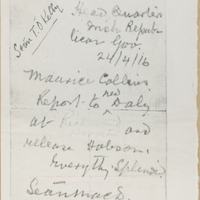 Seán T. O'Kelly
Head Quarters
Irish Repub-
lican Gov.
24/4/16
Maurice Collins
Report to Ned Daly
at and
release Hobson.
Everything Splendid.
Seán Mac D.